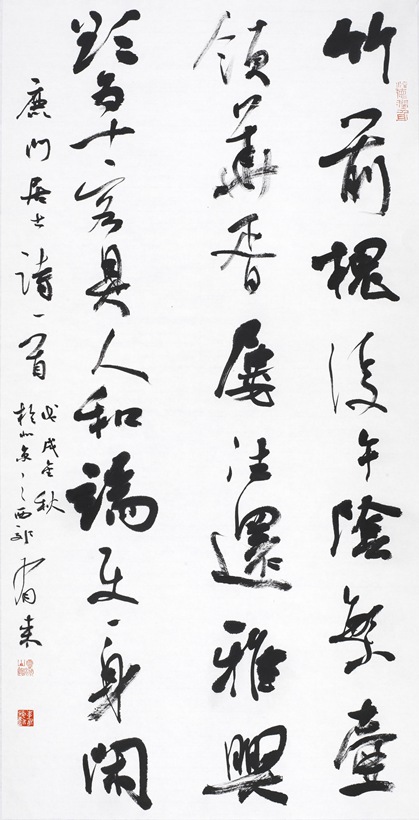 竹前槐後午陰繁壺
領華胥屢往還雅興
欲为十客具人和端使一身閑
鹿門居士詩一首
戊戌金秋
於北京之西郊